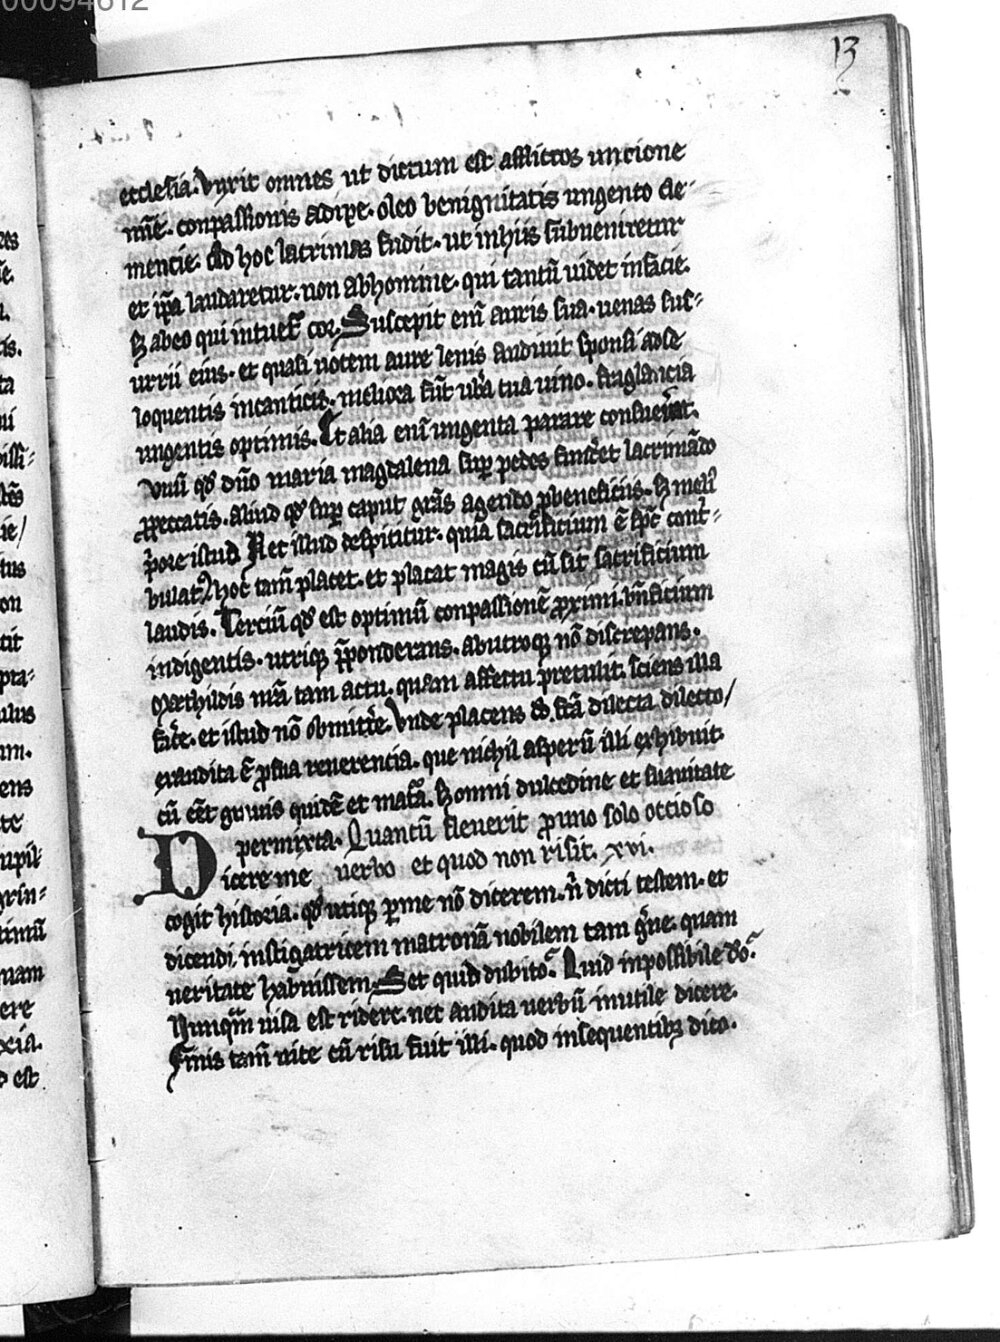 00094612
13
ecclesia. Vnxit omnes ut dictum est afflictos unctione
conpassionis adipe. oleo benignitatis ungento cle-
mencie. Ad hoc lacrimas fudit. ut in hiis subueniretur
et ipa laudaretur. non ab homine. qui tantū uidet in facie.
ab eo qui intuet cor. Suscepit eni auris sua. uenas sus-
urrii eius. et quasi uocem aure lenis audiuit sponsi ad se
loquentis in canticis. meliora sūt ubera tua uino. fraglancia
ungentis optimis. Et alia eni ungenta parare consueuerat.
Vnū qd dno maria magdalena sup pedes fundet lacrimādo
p peccatis. aliud qd sup caput grās agendo p beneficiis.
istud Nec illud despicitur. quia sacrificium ē spc cont-
bulat hoc tam placet. et placat magis cū sit sacrificium
laudis. Terciū qd est optimū conpassionē proximi bnficium
indigentis. utriq; pponderans. ab utroq; nō discrepans.
Mechildis nra tam actu. quam affectu pretulit. sciens illa
face. et istud nō obmitte. Vnde placens do. sca dilecta dilecto/
exaudita ē p sua reuerencia. que nichil asperū illi exhibuit.
cū eet grauis quidē et mat̄a. omni dulcedine et suauitate
permixta. Quantū fleuerit primo solo occioso
Dicere me uerbo et quod non risit. xvi.
cogit historia. qd utiq; p me nō dicerem. n dicti testem. et
dicendi instigatricem matronā nobilem tam gne. quam
ueritate habuissem. Set quid dubito. Quid inpossibile do.
Nunqm uisa est ridere. nec audita uerbū inutile dicere.
Finis tam uite cū risu fuit illi. quod in sequentib; dico.